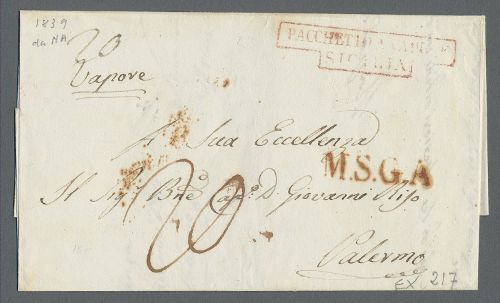 1839
da NA.
20
Vapore
PACCHETTO A VAPORE
SICILIANI
A Sua Eccellenza
M.S.G.A
Il Sig.r Bne D. Giovanni Riso
20
Palermo
EX 217